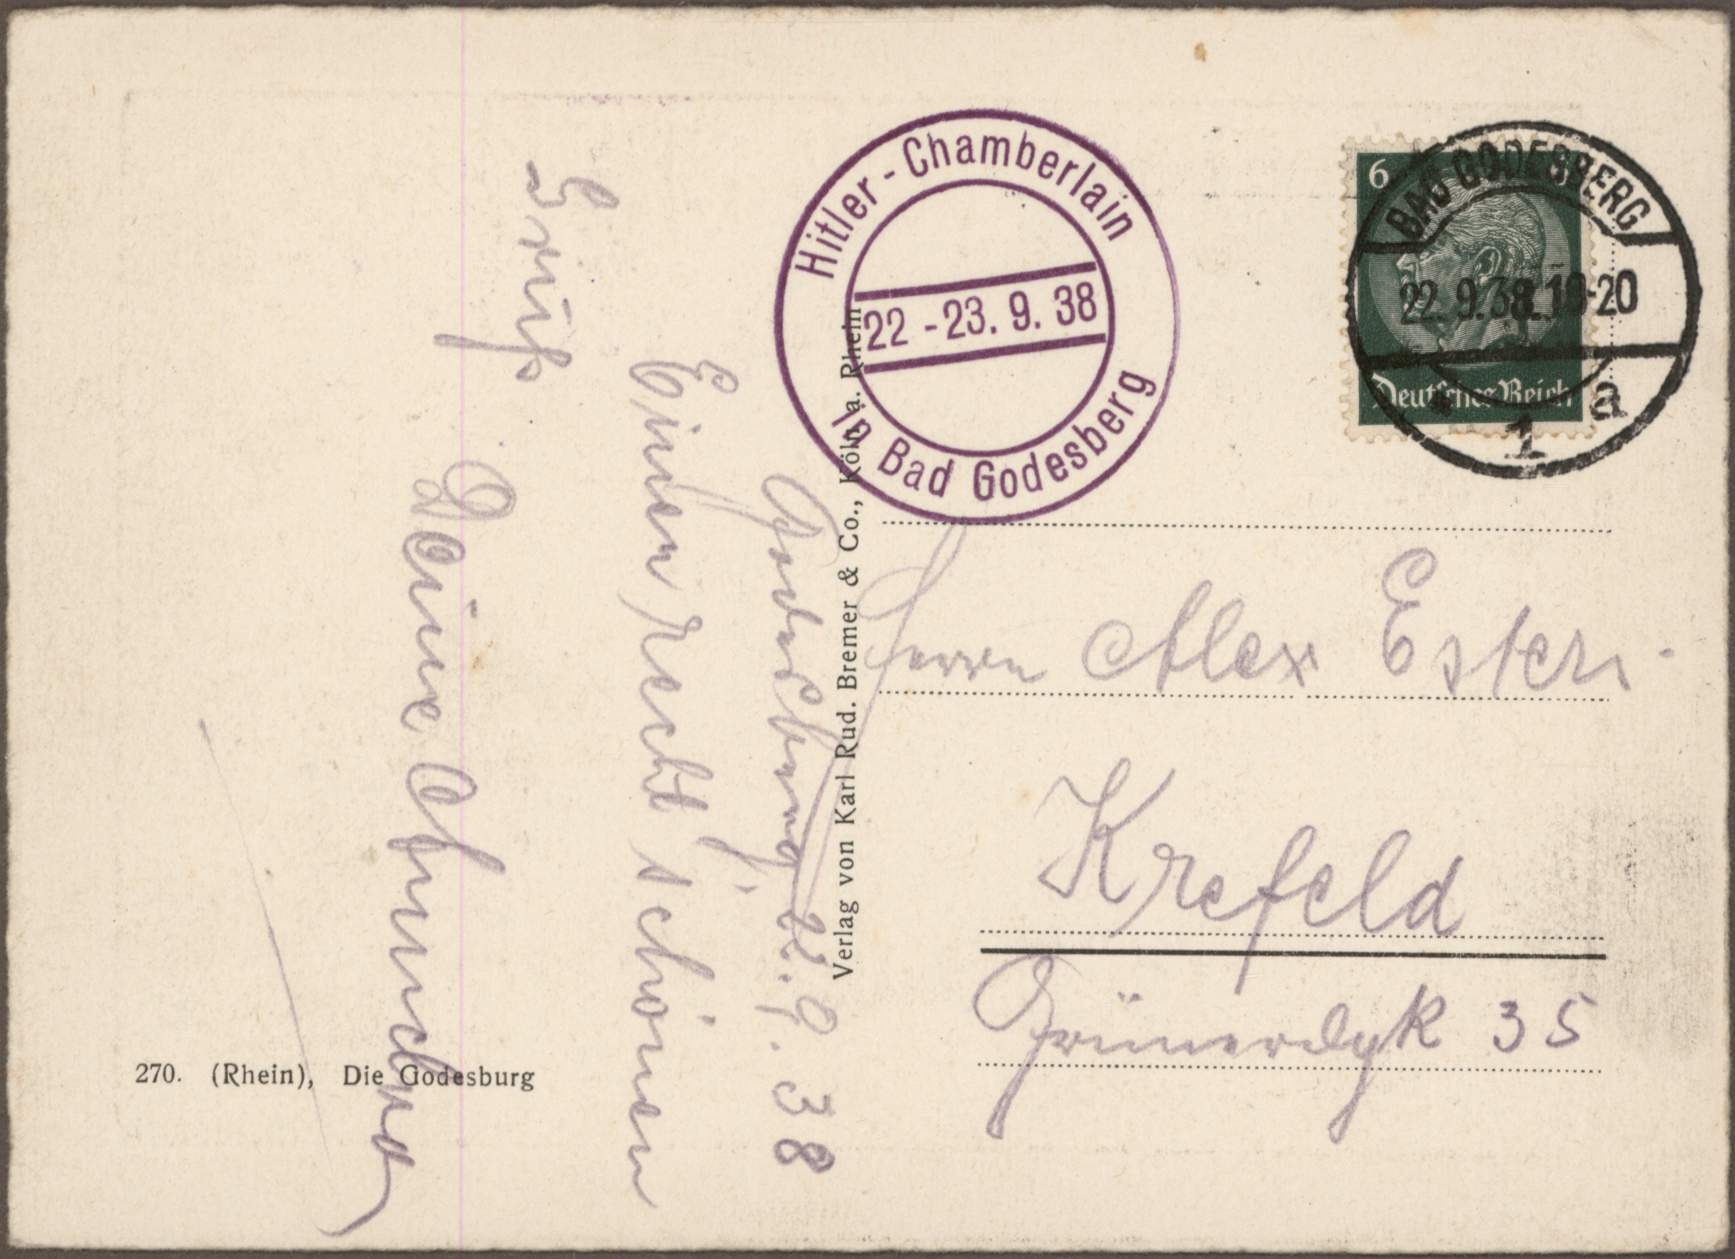 Godesberg, 22.9.38
Einen recht schönen
Gruß
Deine
270. (Rhein), Die Godesburg
Verlag von Karl Rud. Bremer & Co., Köln a. Rhein
Hitler - Chamberlain
22 - 23. 9. 38
in Bad Godesberg
6
Deutsches Reich
BAD GODESBERG
22. 9. 38. 19-20
1 a
Herrn Alex Esters.
Krefeld
Grünerdyk 35